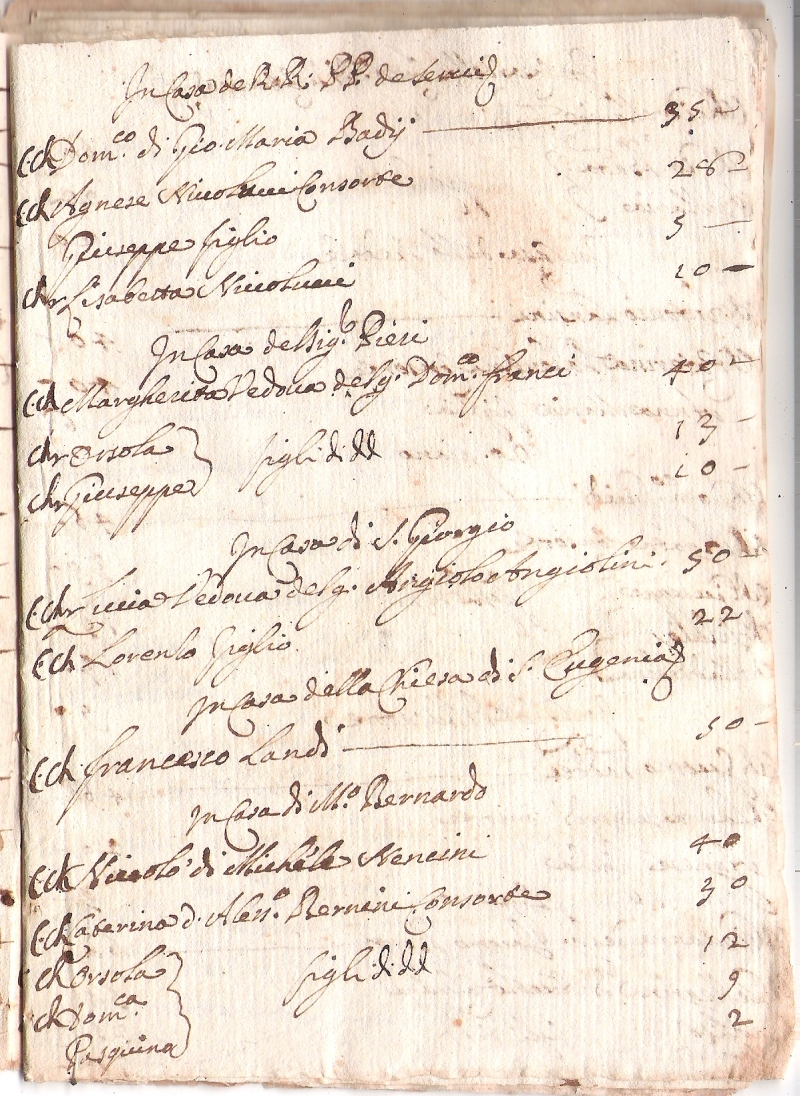 In Casa de R.R: PP. de Servi
C.ch Dom.co di Gio: Maria Badij 35
C.ch Agnese Nicolucci Consorte 28
Giuseppe figlio 5
chr Lisabetta Nicolucci 10
In Casa de Sig.ri Pieri
C.ch Margherita Vedova del Sg. Dom.co Franci 40
chr Orsola 13
figli di dd
chr Giuseppe 10
In Casa di S. Giorgio
C.chr Lucia Vedova del Sg. Angiolo Angiolini 50
C.ch Lorenzo figlio 22
In Casa della Chiesa di S. Eugenia
C.ch Francesco Landi 50
In Casa di M.o Bernardo
C.ch Niccolò di Michele Nencini 40
C.ch Caterina d. Aless.o Bernini Consorte 30
ch Orsola 12
figli di dd
ch Dom.ca 9
Pasquina 2